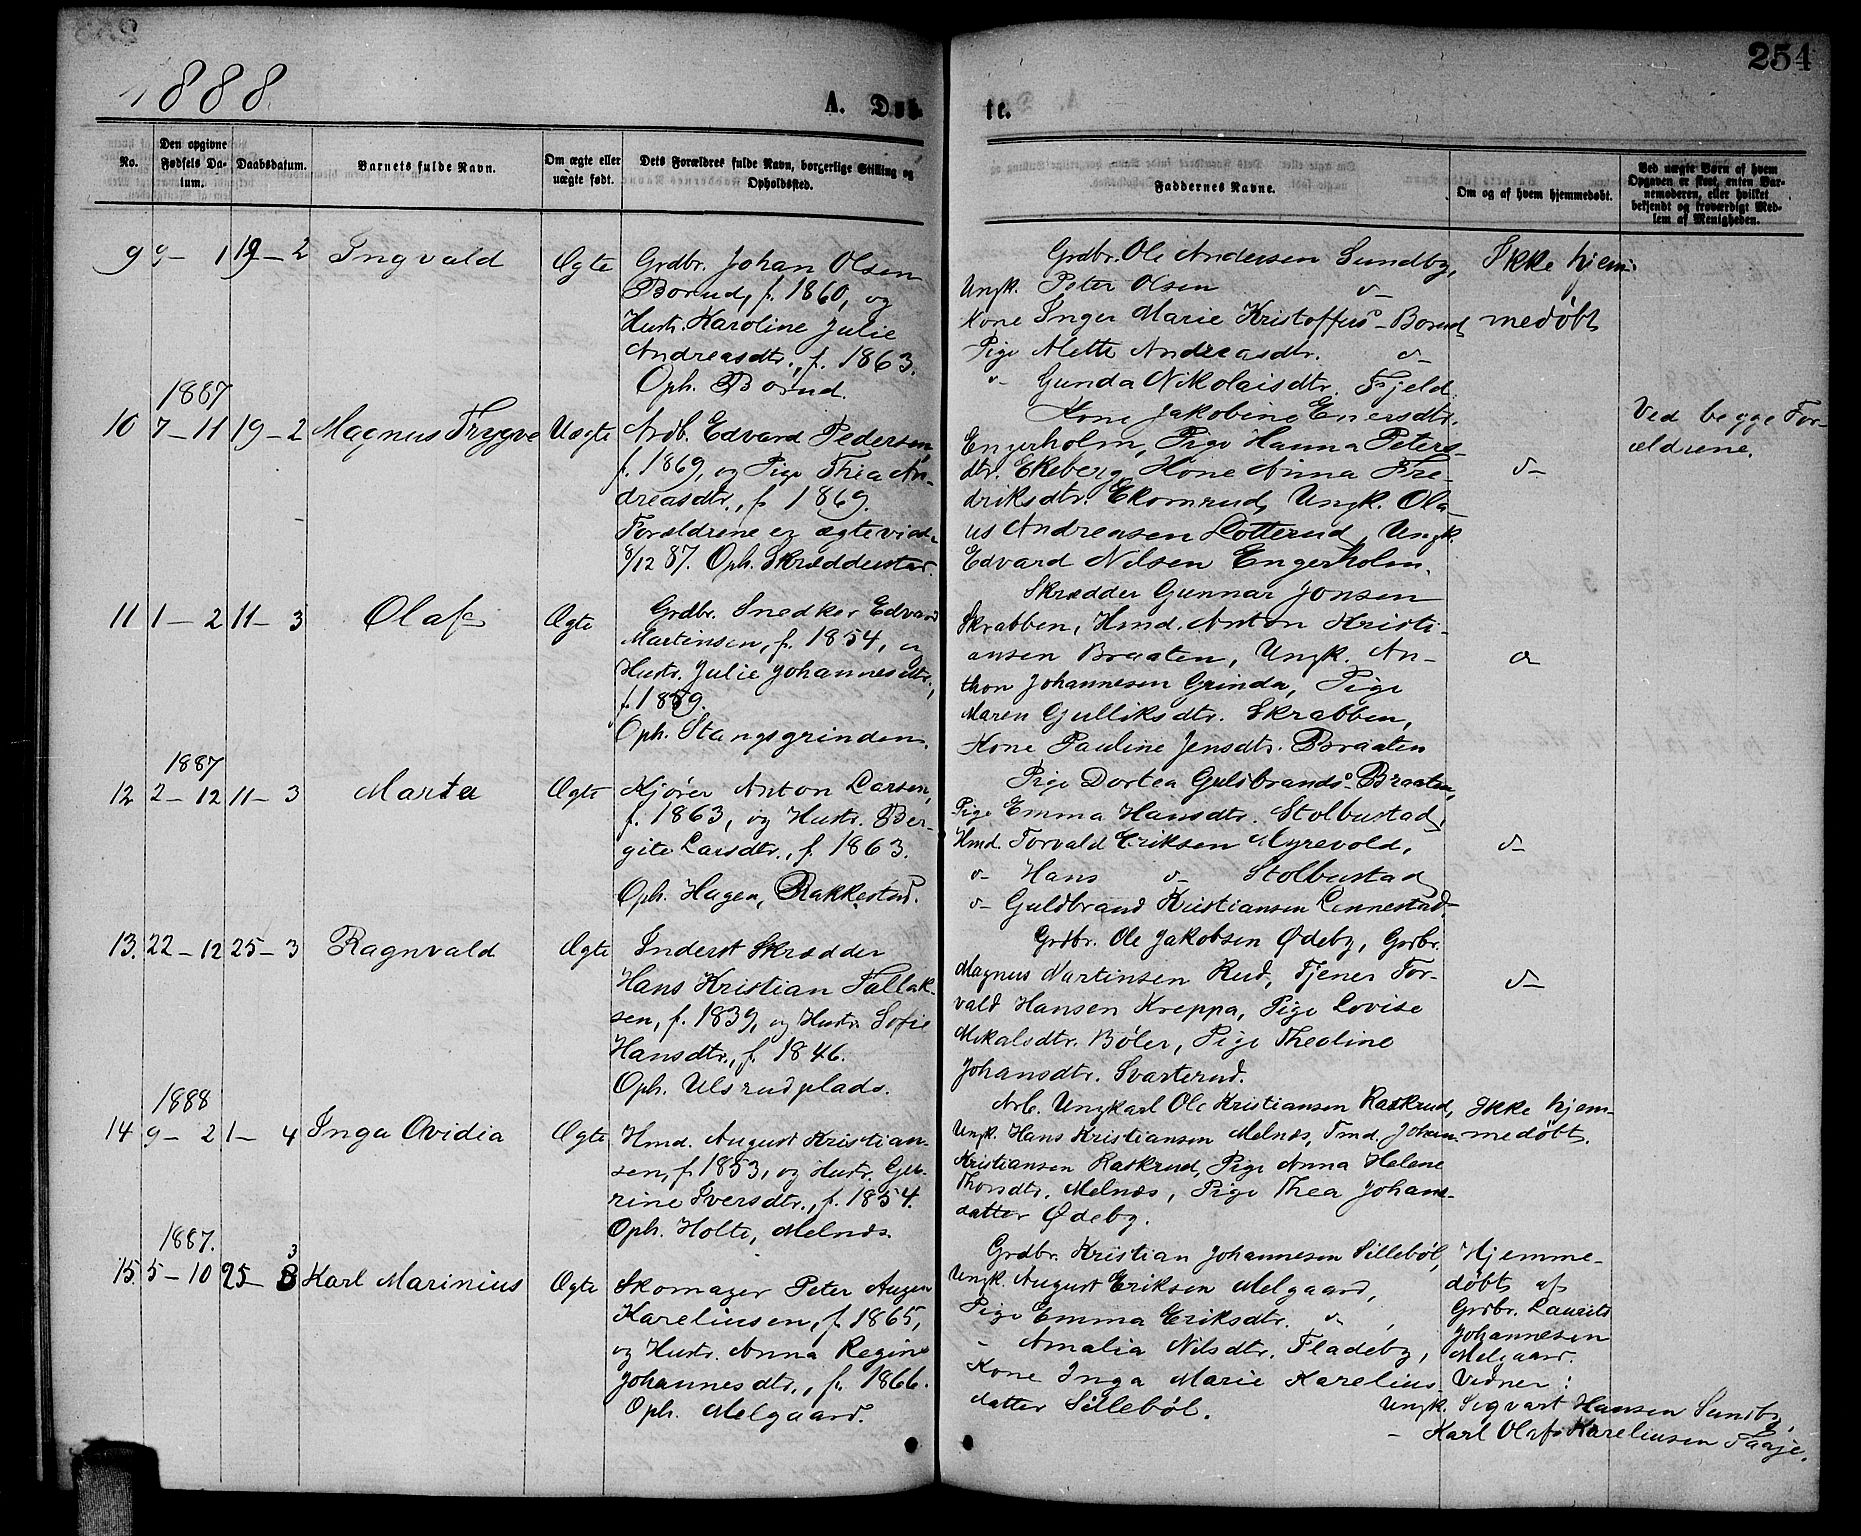 254
1888
A. Døb
te.
No.
Den opgivne Fødsels Datum.
Daabsdatum.
Barnets fulde Navn.
Om ægte eller uægte født.
Dets Forældres fulde Navn, borgerlige Stilling og Opholdssted.
Faddernes Navne.
Om og af hvem hjemmedøbt.
Ved uægte Børn af hvem Opgaven er skeet, enten Barnemoderen, eller hvilket bekjendt og troværdigt Medlem af Menigheden.
9 9-1 19-2 Ingvald Ægte
Grdbr. Johan Olsen
Borud, f. 1860, og
Hustr. Karoline Julie
Andreasdtr., f. 1863.
Oph. Borud.
Grdbr. Ole Andersen Sundby,
Ungk. Peter Olsen —
Kone Inger Marie Kristoffers Borud
Pige Alette Andreasdtr. —
— Gunda Nikolaisdtr. Fjeld.
Ikke hjem-
medøbt
1887
10 7-11 19-2 Magnus Trygve Uægte
Arb. Edvard Pedersen,
f. 1869, og Pige Thea An-
dreasdtr., f. 1869.
Forældrene er ægteviede
8/12 87. Oph. Skrædderstad.
Kone Jakobine Enersdtr.
Engerholm, Pige Hanna Peters-
dtr. Ekeberg, Kone Anna Fre-
driksdtr. Ekornrud, Ungk. Ola-
us Andreasen Lotterud, Ungk.
Edvard Nilsen Engerholm.
Ved begge For-
ældrene.
11 1-2 11-3 Olaf Ægte
Grdbr. Snedker Edvard
Martinsen, f. 1854, og
Hustr. Julie Johannesdtr.,
f. 1859.
Oph. Stangsgrinden.
Skrædder Gunnar Jonsen
Skrabben, Hmd. Anton Kristi-
ansen Braaten, Ungk. An-
thon Johannesen Grinda, Pige
Maren Gulliksdtr. Skrabben,
Kone Pauline Jensdtr. Braaten
1887
12 2-12 11-3 Marta Ægte
Kjører Anton Larsen,
f. 1863, og Hustr. Ber-
gite Larsdtr., f. 1863.
Oph. Hagen, Rakkestad.
Pige Dortea Guldbrands Braaten,
Pige Emma Hansdtr. Stolbustad,
Hmd. Torvald Eriksen Myrevold,
— Hans — Stolbustad
— Guldbrand Kristiansen Linnestad
13. 22-12 25-3 Ragnvald Ægte
Inderst Skrædder
Hans Kristian Fallak-
sen, f. 1839, og Hustr. Sofie
Hansdtr., f. 1846.
Oph. Ulsrudplads.
Grdbr. Ole Jakobsen Ødeby, Grdbr.
Magnus Martinsen Rud, Tjener Tor-
vald Hansen Kreppa, Pige Lovise
Mikalsdtr. Bøler, Pige Theoline
Johansdtr. Svarterud.
1888
14 9-2 1-4 Inga Ovidia Ægte
Hmd. August Kristian-
sen, f. 1853, og Hustr. Gu-
rine Iversdtr., f. 1854.
Oph. Holte, Melnæs.
Arb. Ungkarl Ole Kristiansen Raskrud,
Ungk. Hans Kristiansen Melnæs, Tmd. Johan
Kristiansen Raskrud, Pige Anna Helene
Thorsdtr. Melnæs, Pige Thea Johans-
datter Ødeby.
Ikke hjem-
medøbt.
1887.
15. 5-10 25-3 Karl Marinius Ægte
Skomager Peter August
Kareliusen, f. 1865,
og Hustr. Anna Regine
Johannesdtr., f. 1866.
Oph. Melgaard.
Grdbr. Kristian Johannesen Sillebøl,
Ungk. August Eriksen Melgaard,
Pige Emma Eriksdtr. —,
— Amalia Nilsdtr. Fladeby,
Kone Inga Marie Karelius-
datter Sillebøl.
Hjemme-
døbt af
Grdbr. Laurits
Johannesen
Melgaard.
Vidner:
Ungk. Sigvart Hansen Sundby,
— Karl Olaf Kareliusen Taaje.